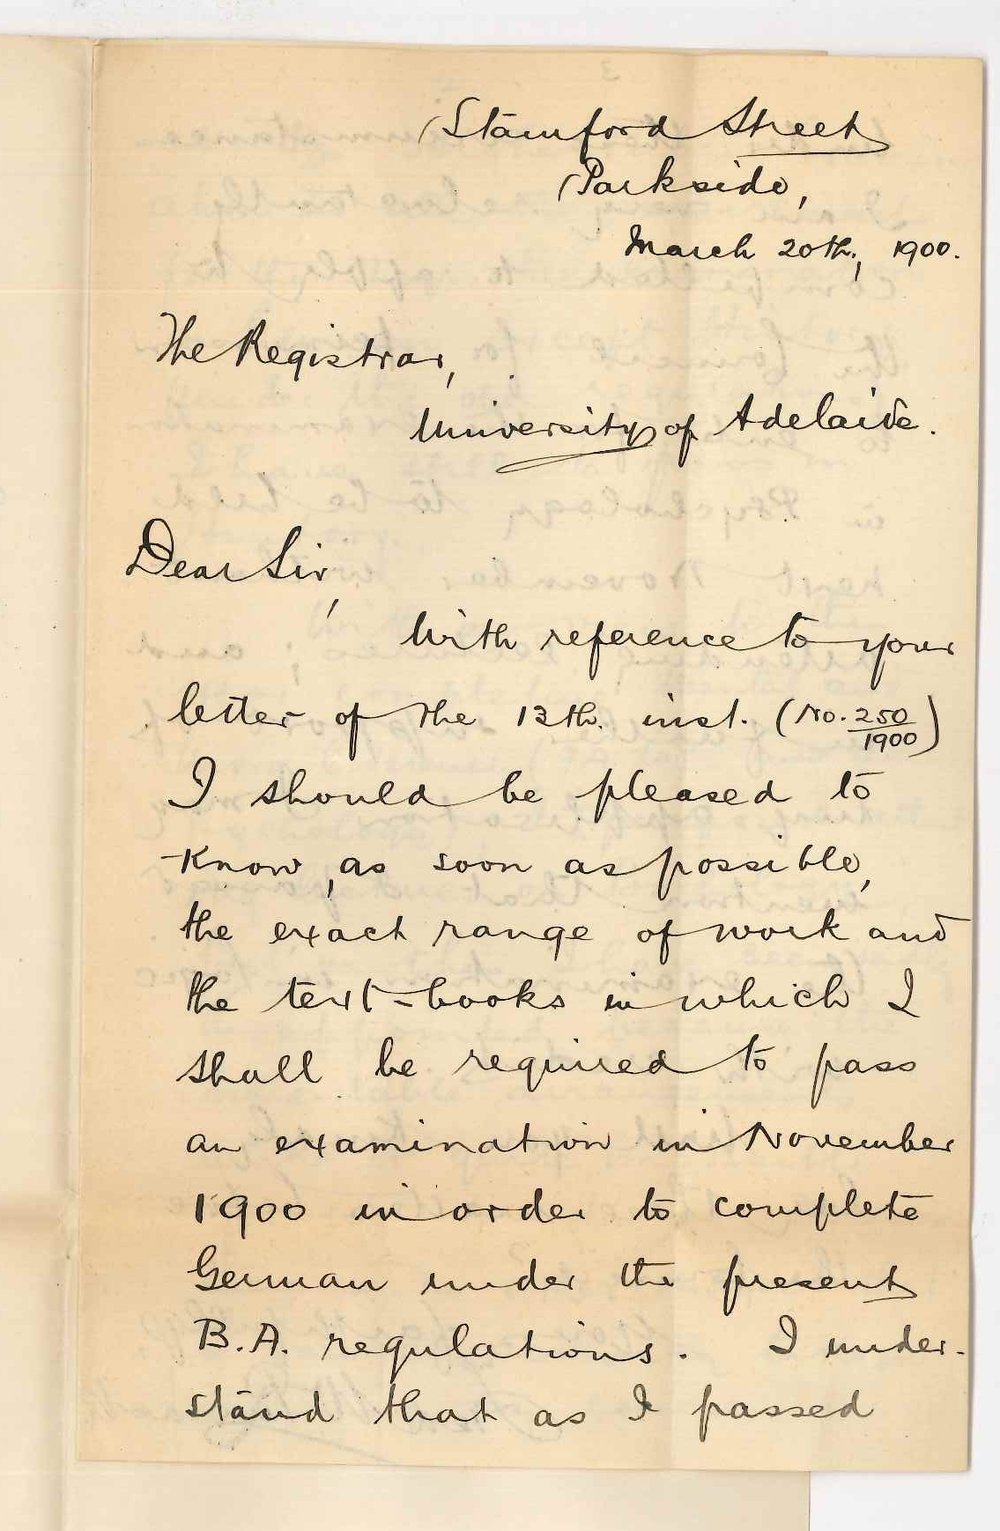 Stamford Street
Parkside,
March 20th., 1900.
The Registrar,
University of Adelaide.
Dear Sir,
With reference to your
letter of the 13th. inst. (No. 250/1900)
I should be pleased to
know, as soon as possible,
the exact range of work and
the text-books in which I
shall be required to pass
an examination in November
1900 in order to complete
German under the present
B.A. regulations. I under-
stand that as I passed